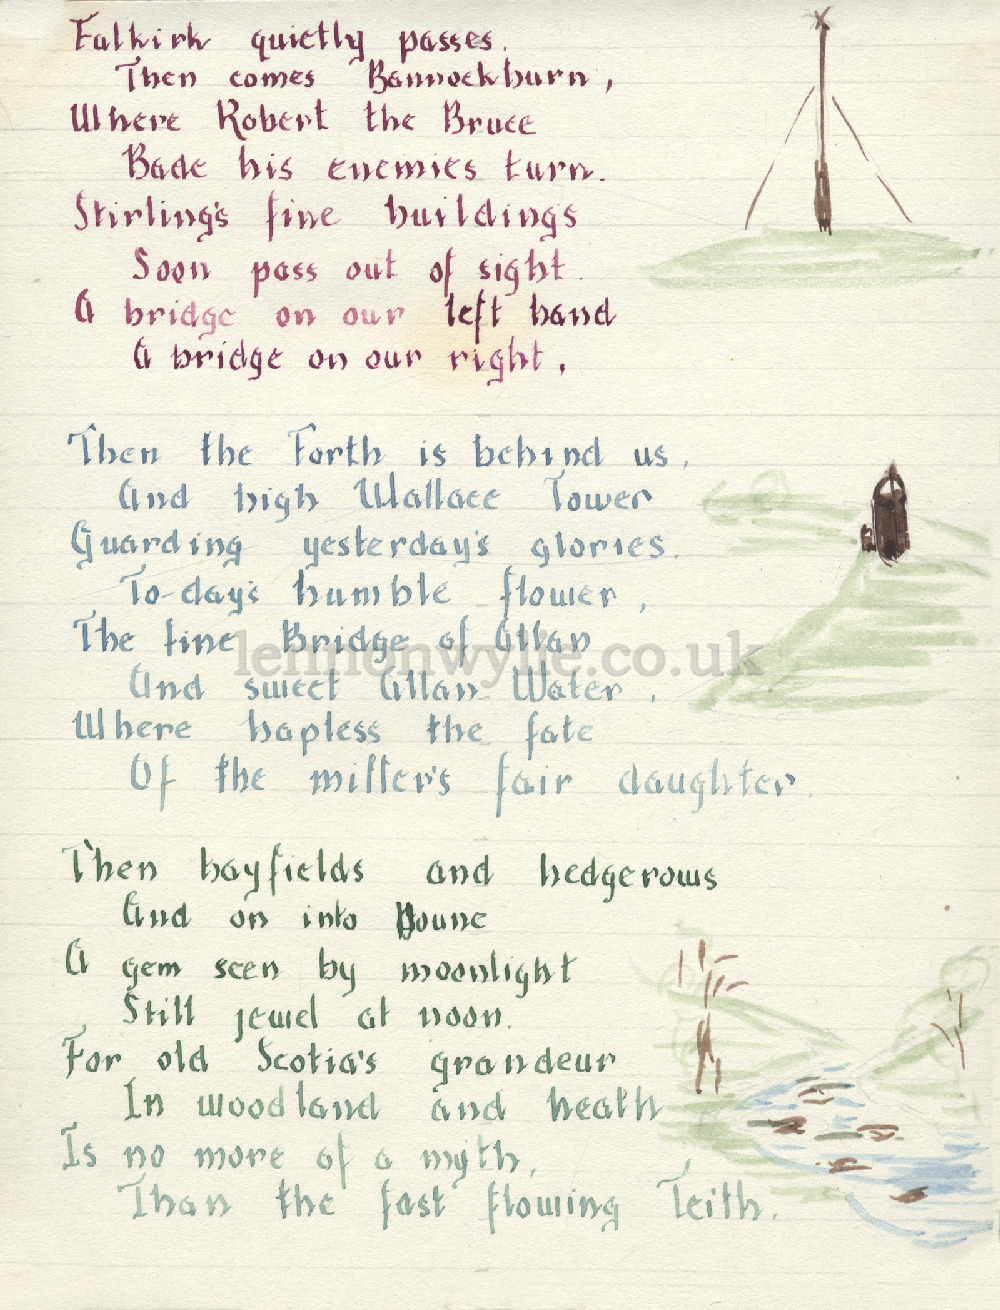 Falkirk quietly passes.
Then comes Bannockburn,
Where Robert the Bruce
Bade his enemies turn.
Stirling's fine buildings
Soon pass out of sight.
A bridge on our left hand
A bridge on our right.
Then the Forth is behind us,
And high Wallace Tower
Guarding yesterday's glories.
To-day's humble flower,
The fine Bridge of Allan
And sweet Allan Water,
Where hapless the fate
Of the miller's fair daughter.
Then hayfields and hedgerows
And on into Doune
A gem seen by moonlight
Still jewel at noon.
For old Scotia's grandeur
In woodland and heath
Is no more of a myth,
Than the fast flowing Teith.
lennonwylie.co.uk